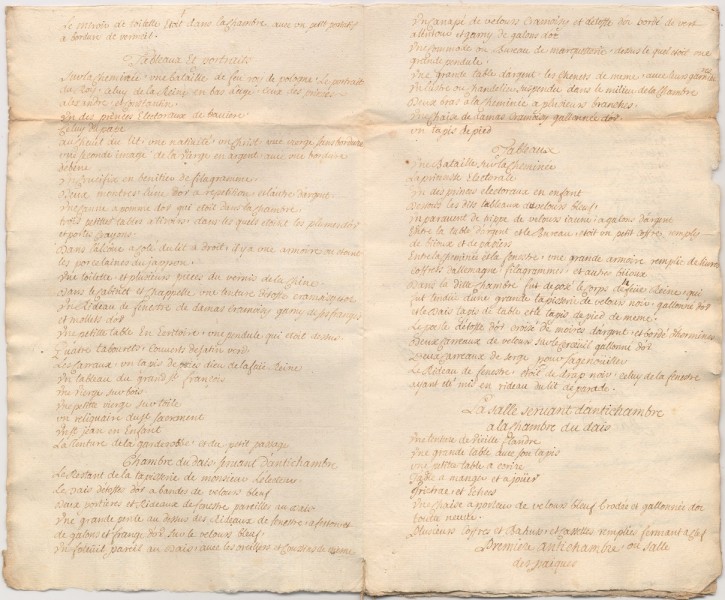 Le miroir de toilette étoit dans la chambre avec un petit
a bordure de vermeil.
Tableaux et portraits
Sur la cheminée, une bataille de feu roy de pologne. Le portrait
du Roy, celuy de la Reine, en bas aagé cinq des princes
alexandre, et constantin
Un des princes Electoraux de baviere
Celuy du pape
au chevet du lit, une nativité, un christ, une vierge sans bordure
une seconde image de la vierge en argent, avec une bordure
debene
un crucifix en benitier de filagramme.
Deux montres d'or a repetition, et l'autre d'argent.
Une canne a pomme dor qui etoit dans la chambre
dans les quels étoient les plumes
et portes crayons.
Dans lalcôve a coté du lit a droit, il y a une armoire ou étoient
les porcelaines du jappon.
Une toilette, et plusieurs pieces du vernis de la chine
Dans le cabinet et chappelle une tenture
un Rideau de fenestre de damas cramoisy garny de franges
et mollets dor
Une petite table en ecritoire, une pendule qui etoit dessus
Quatre tabourets, couverts de satin verd
Les carraux, un tapis de pries dieu de la feüe Reine
Un tableau du grand st françois
une vierge sur bois
une petite vierge sur toile
un reliquaire du st sacrement
un st Jean en Enfant
La tenture de la garderobbe, et du petit passage
Chambre du dais servant d'antichambre
Le Restant de la tapisserie de monsieur
Le dais d'etoffe dor a bandes de velours bleuf
Deux portieres et Rideaux de fenestre pareilles au dais
Une grande pente au dessus des Rideaux de fenestre,
de galons et frange dor sur le velours bleuf.
Un fauteüil pareil au dais, avec les
Un canapé de velours cramoisy et d'etoffe dor bordé de vert
et garny de galons dor
Une commode ou Bureau de marqueterie, dessus le quel etoit une
grande pendule.
Une grande table dargent, les chenets de meme, avec leurs
Un lustre ou chandelier suspendu dans le milieu de la chambre
Deux bras a la cheminée a plusieurs branches.
Une chaise de damas cramoisy gallonnée dor
un tapis de pied
Tableaux
Une Bataille sur la cheminée
La princesse Electorale
Un des princes electoraux en enfant
Dessous les dits tableaux du velours bleuf
Un parement de de velours jaune a galons dargent
Entre la table d'argent et le Bureau, etoit un petit coffre, remply
de bijoux et de papiers
Entre la cheminée et la fenestre, une grande armoire remplie de
coffrets dallemagne, filagrammes, et autres bijoux
Dans la ditte chambre fut deposé le corps de feüe la Reine, qui
fut tendue d'une grande tapisserie de velours noir, gallonnée dor
et le dais tapis de table et le tapis de pied de meme.
Le poele d'etoffe dor croix de moires dargent et bordé d'hermines
Deux carreaux de velours sur le gallonné dor
Deux carreaux de serge pour sagenoüiller
Le Rideau de fenestre, etoit de drap noir, celuy de la fenestre
ayant eté mis en rideau du lit de parade.
La Salle servant dantichambre
a la chambre du dais
Une tenture de Vieille flandre
Une grande table avec son tapis
une petite table a ecrire
table a manger et a joüer
trictrac et échecs
Une chaise a porteur de velours bleuf brodée et gallonnée dor
toute neuve.
Plusieurs coffres et Bahus, et cassettes remplies fermant a clef
Premiere antichambre ou salle
des pacques